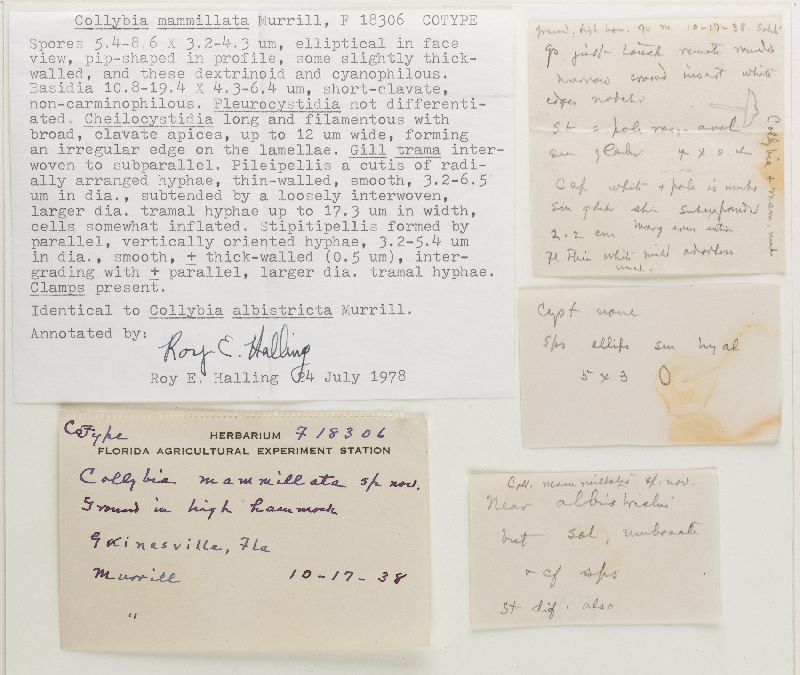 Collybia mammillata Murrill, F 18306 COTYPE
Spores 5.4-8.6 X 3.2-4.3 um, elliptical in face
view, pip-shaped in profile, some slightly thick-
walled, and these dextrinoid and cyanophilous.
Basidia 10.8-19.4 X 4.3-6.4 um, short-clavate,
non-carminophilous. Pleurocystidia not differenti-
ated. Cheilocystidia long and filamentous with
broad, clavate apices, up to 12 um wide, forming
an irregular edge on the lamellae. Gill trama inter-
woven to subparallel. Pileipellis a cutis of radi-
ally arranged hyphae, thin-walled, smooth, 3.2-6.5
um in dia., subtended by a loosely interwoven,
larger dia. tramal hyphae up to 17.3 um in width,
cells somewhat inflated. Stipitipellis formed by
parallel, vertically oriented hyphae, 3.2-5.4 um
in dia., smooth, ± thick-walled (0.5 um), inter-
grading with ± parallel, larger dia. tramal hyphae.
Clamps present.
Identical to Collybia albistricta Murrill.
Annotated by:
Roy E. Halling
Roy E. Halling 24 July 1978
ground, high ham. 10-17-38
narrow crowd white
edges
St =
glabr 4 x
Cap white +
2.2 cm marg even
Fl thin white mild odorless
Collybia + mam.
Cyst none
Sps ellips sm hyal
5 x 3
Cotype HERBARIUM F 18306
FLORIDA AGRICULTURAL EXPERIMENT STATION
Collybia mammillata sp nov.
Ground in high hammock
Gainesville, Fla
Murrill 10-17-38
"
Coll. mammillata sp. nov.
Near
but sol, umbonate
+ cf sps
St dif. also